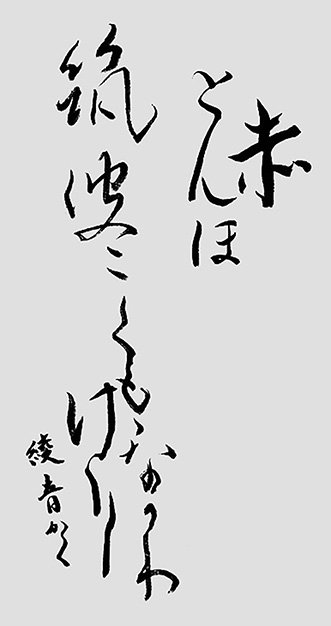 赤
とんほ
筑波に
くもなかり
けり
綾音かく